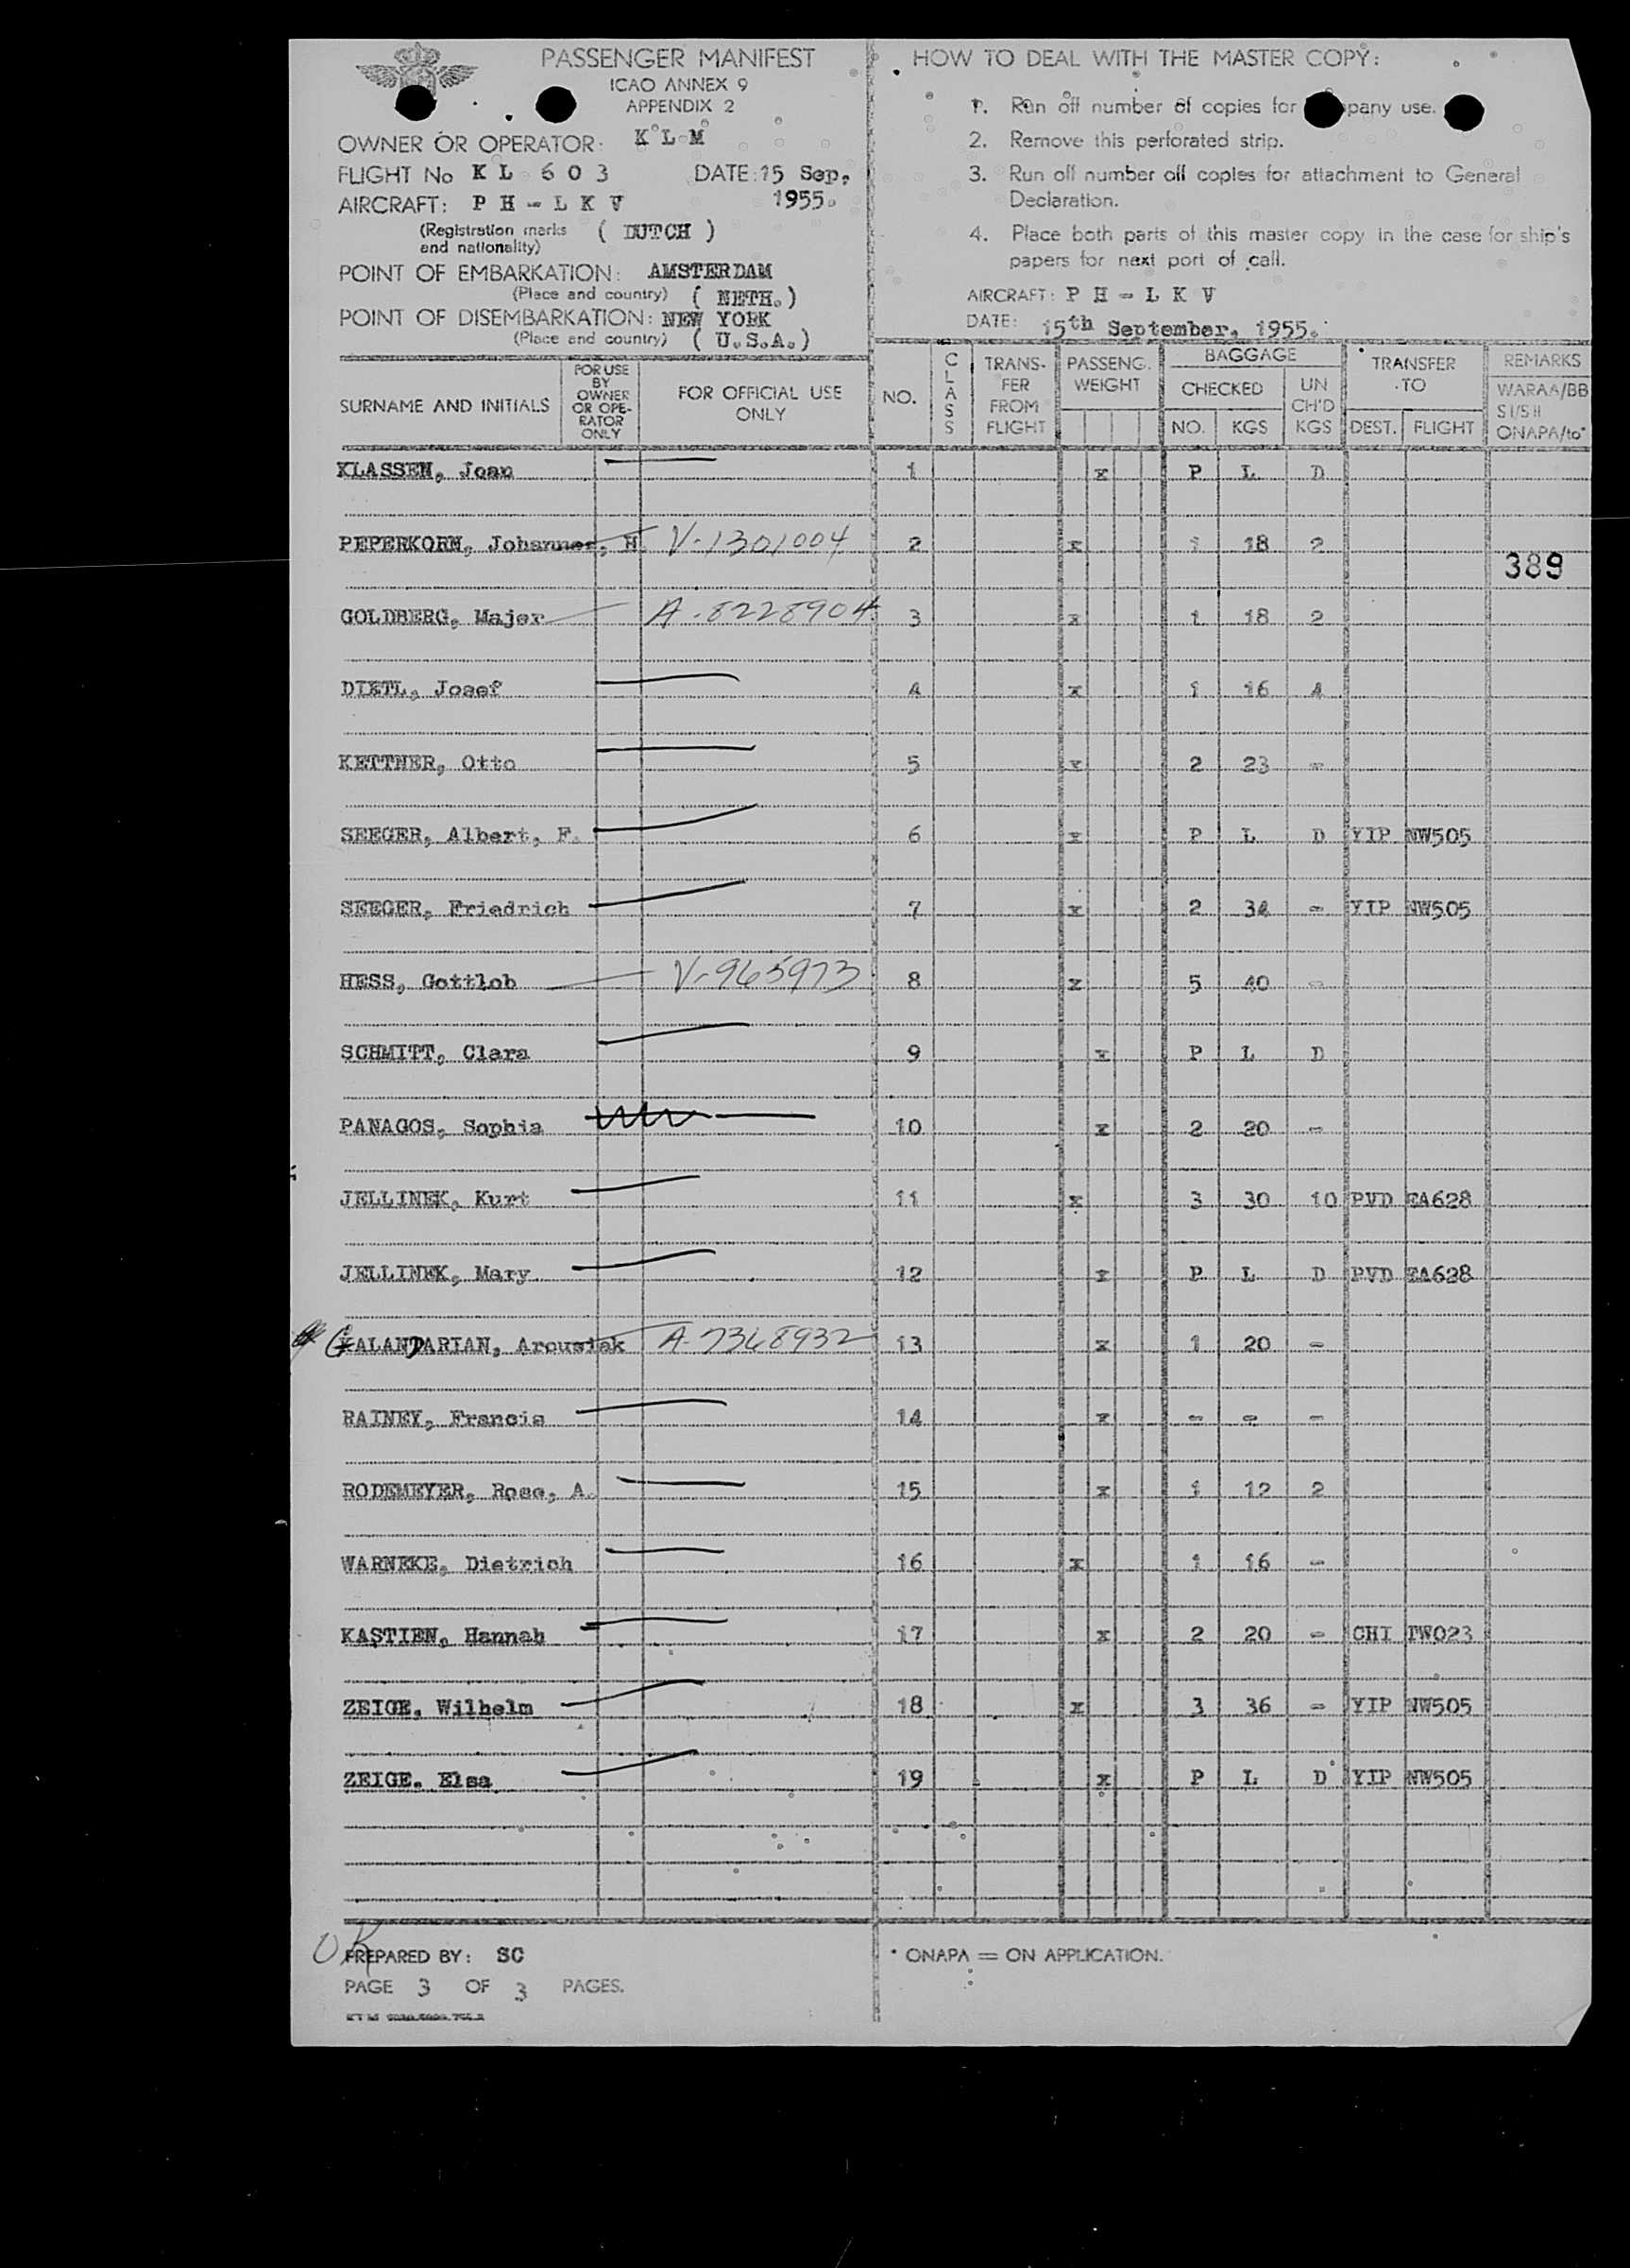 PASSENGER MANIFEST
ICAO ANNEX 9
APPENDIX 2
OWNER OR OPERATOR: K L M
FLIGHT No KL 603 DATE: 15 Sep. 1955.
AIRCRAFT: P H - L K V
(Registration marks and nationality) ( DUTCH )
POINT OF EMBARKATION: AMSTERDAM
(Place and country) ( NETH. )
POINT OF DISEMBARKATION: NEW YORK
(Place and country) ( U.S.A. )
HOW TO DEAL WITH THE MASTER COPY:
1. Run off number of copies for pany use.
2. Remove this perforated strip.
3. Run off number off copies for attachment to General
Declaration.
4. Place both parts of this master copy in the case for ship's
papers for next port of call.
AIRCRAFT: P H - L K V
DATE: 15th September, 1955.
SURNAME AND INITIALS
FOR USE BY OWNER OR OPE-RATOR ONLY
FOR OFFICIAL USE ONLY
NO.
CLASS
TRANS-FER FROM FLIGHT
PASSENG. WEIGHT
BAGGAGE
CHECKED
NO. KGS
UN CH'D KGS
TRANSFER TO
DEST. FLIGHT
REMARKS
WARAA/BB
S I/S II
ONAPA/to*
KLASSEN, Joan 1 x P L D
PEPERKORN, Johannes, H. V-1301004 2 x 1 18 2
389
GOLDBERG, Majer A-8228904 3 x 1 18 2
DIETL, Josef 4 x 1 16 4
KETTNER, Otto 5 x 2 23 -
SEEGER, Albert, F. 6 x P L D YIP NW505
SEEGER, Friedrich 7 x 2 34 - YIP NW505
HESS, Gottlob V-965973 8 x 5 40 -
SCHMITT, Clara 9 x P L D
PANAGOS, Sophia 10 x 2 20 -
JELLINEK, Kurt 11 x 3 30 10 PVD EA628
JELLINEK, Mary 12 x P L D PVD EA628
GALANDARIAN, Arousiak A-7368932 13 x 1 20 -
RAINEY, Francis 14 x - - -
RODEMEYER, Rose, A. 15 x 1 12 2
WARNEKE, Dietrich 16 x 1 16 -
KASTIEN, Hannah 17 x 2 20 - CHI TW023
ZEIGE, Wilhelm 18 x 3 36 - YIP NW505
ZEIGE, Elsa 19 x P L D YIP NW505
OK
PREPARED BY: SC
PAGE 3 OF 3 PAGES.
* ONAPA = ON APPLICATION.